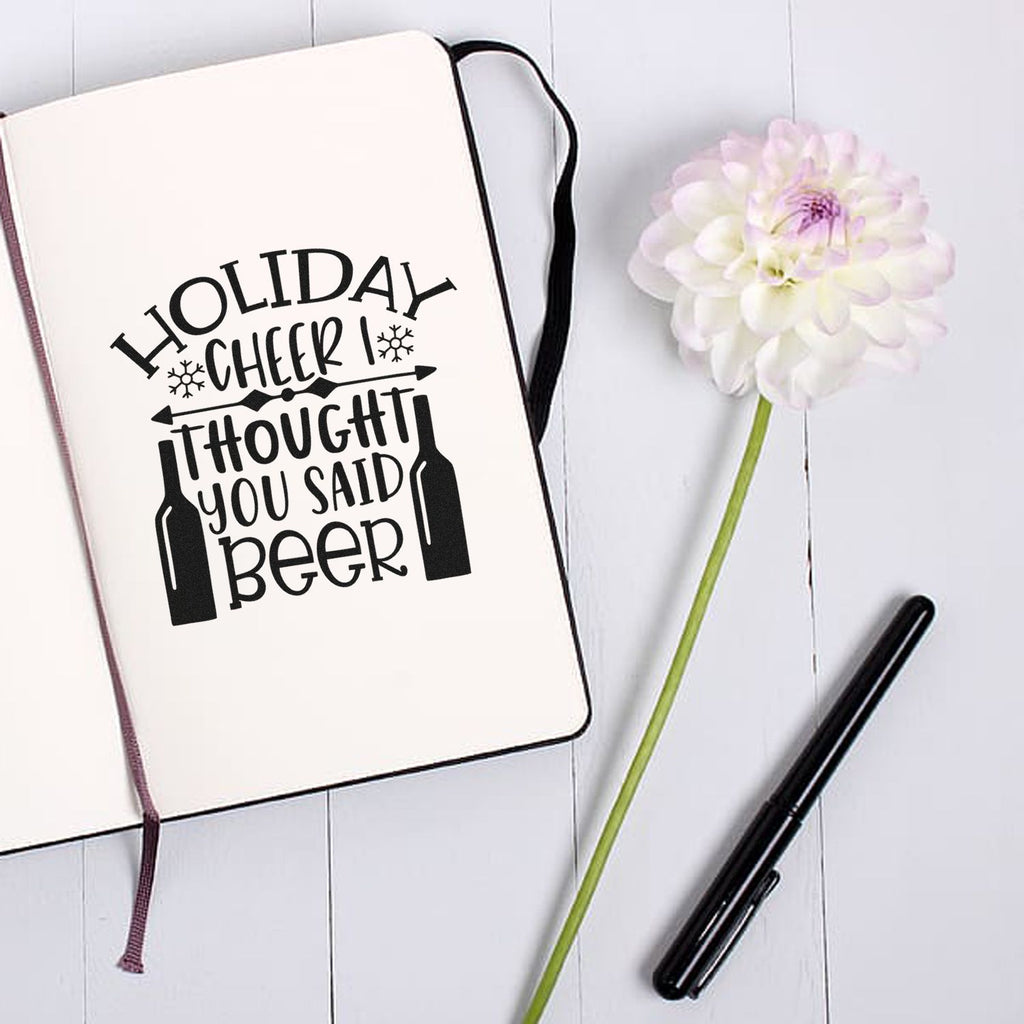 HOLIDAY
CHEER I
THOUGHT
YOU SAID
BEER